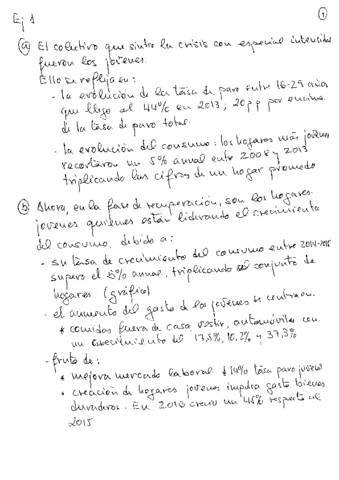 Ej 1
1
a) El colectivo que sintió la crisis con especial intensidad
fueron los jóvenes.
Ello se refleja en:
- la evolución de la tasa de paro entre 16-29 años
que llegó al 44% en 2013, 20 p.p por encima
de la tasa de paro total.
- la evolución del consumo: los hogares más jóvenes
recortaron un 5% anual entre 2008 y 2013
triplicando las cifras de un hogar promedio
b) Ahora, en la fase de recuperación, son los hogares
jóvenes quienes están liderando el crecimiento
del consumo, debido a:
- su tasa de crecimiento del consumo entre 2014-2015
superó el 5% anual, triplicando el conjunto de
hogares (gráfico)
- el aumento del gasto de los jóvenes se centra en
* comidas fuera de casa, vestir, automóviles con
un crecimiento del 17,5%, 10,2% y 37,3%
- fruto de:
* mejora mercado laboral 14% tasa paro juvenil
* creación de hogares jóvenes impulsa gasto bienes
duraderos. En 2016 creció un 45% respecto
2015